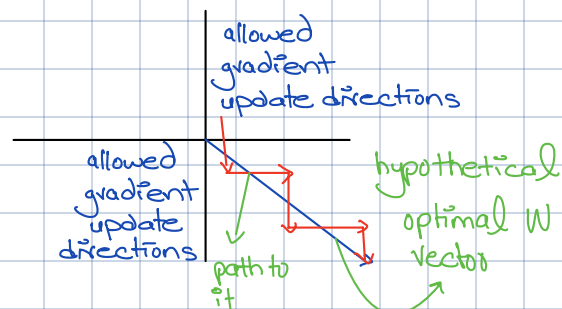 allowed
gradient
update directions
allowed
gradient
update
directions
hypothetical
optimal W
vector
path to
it